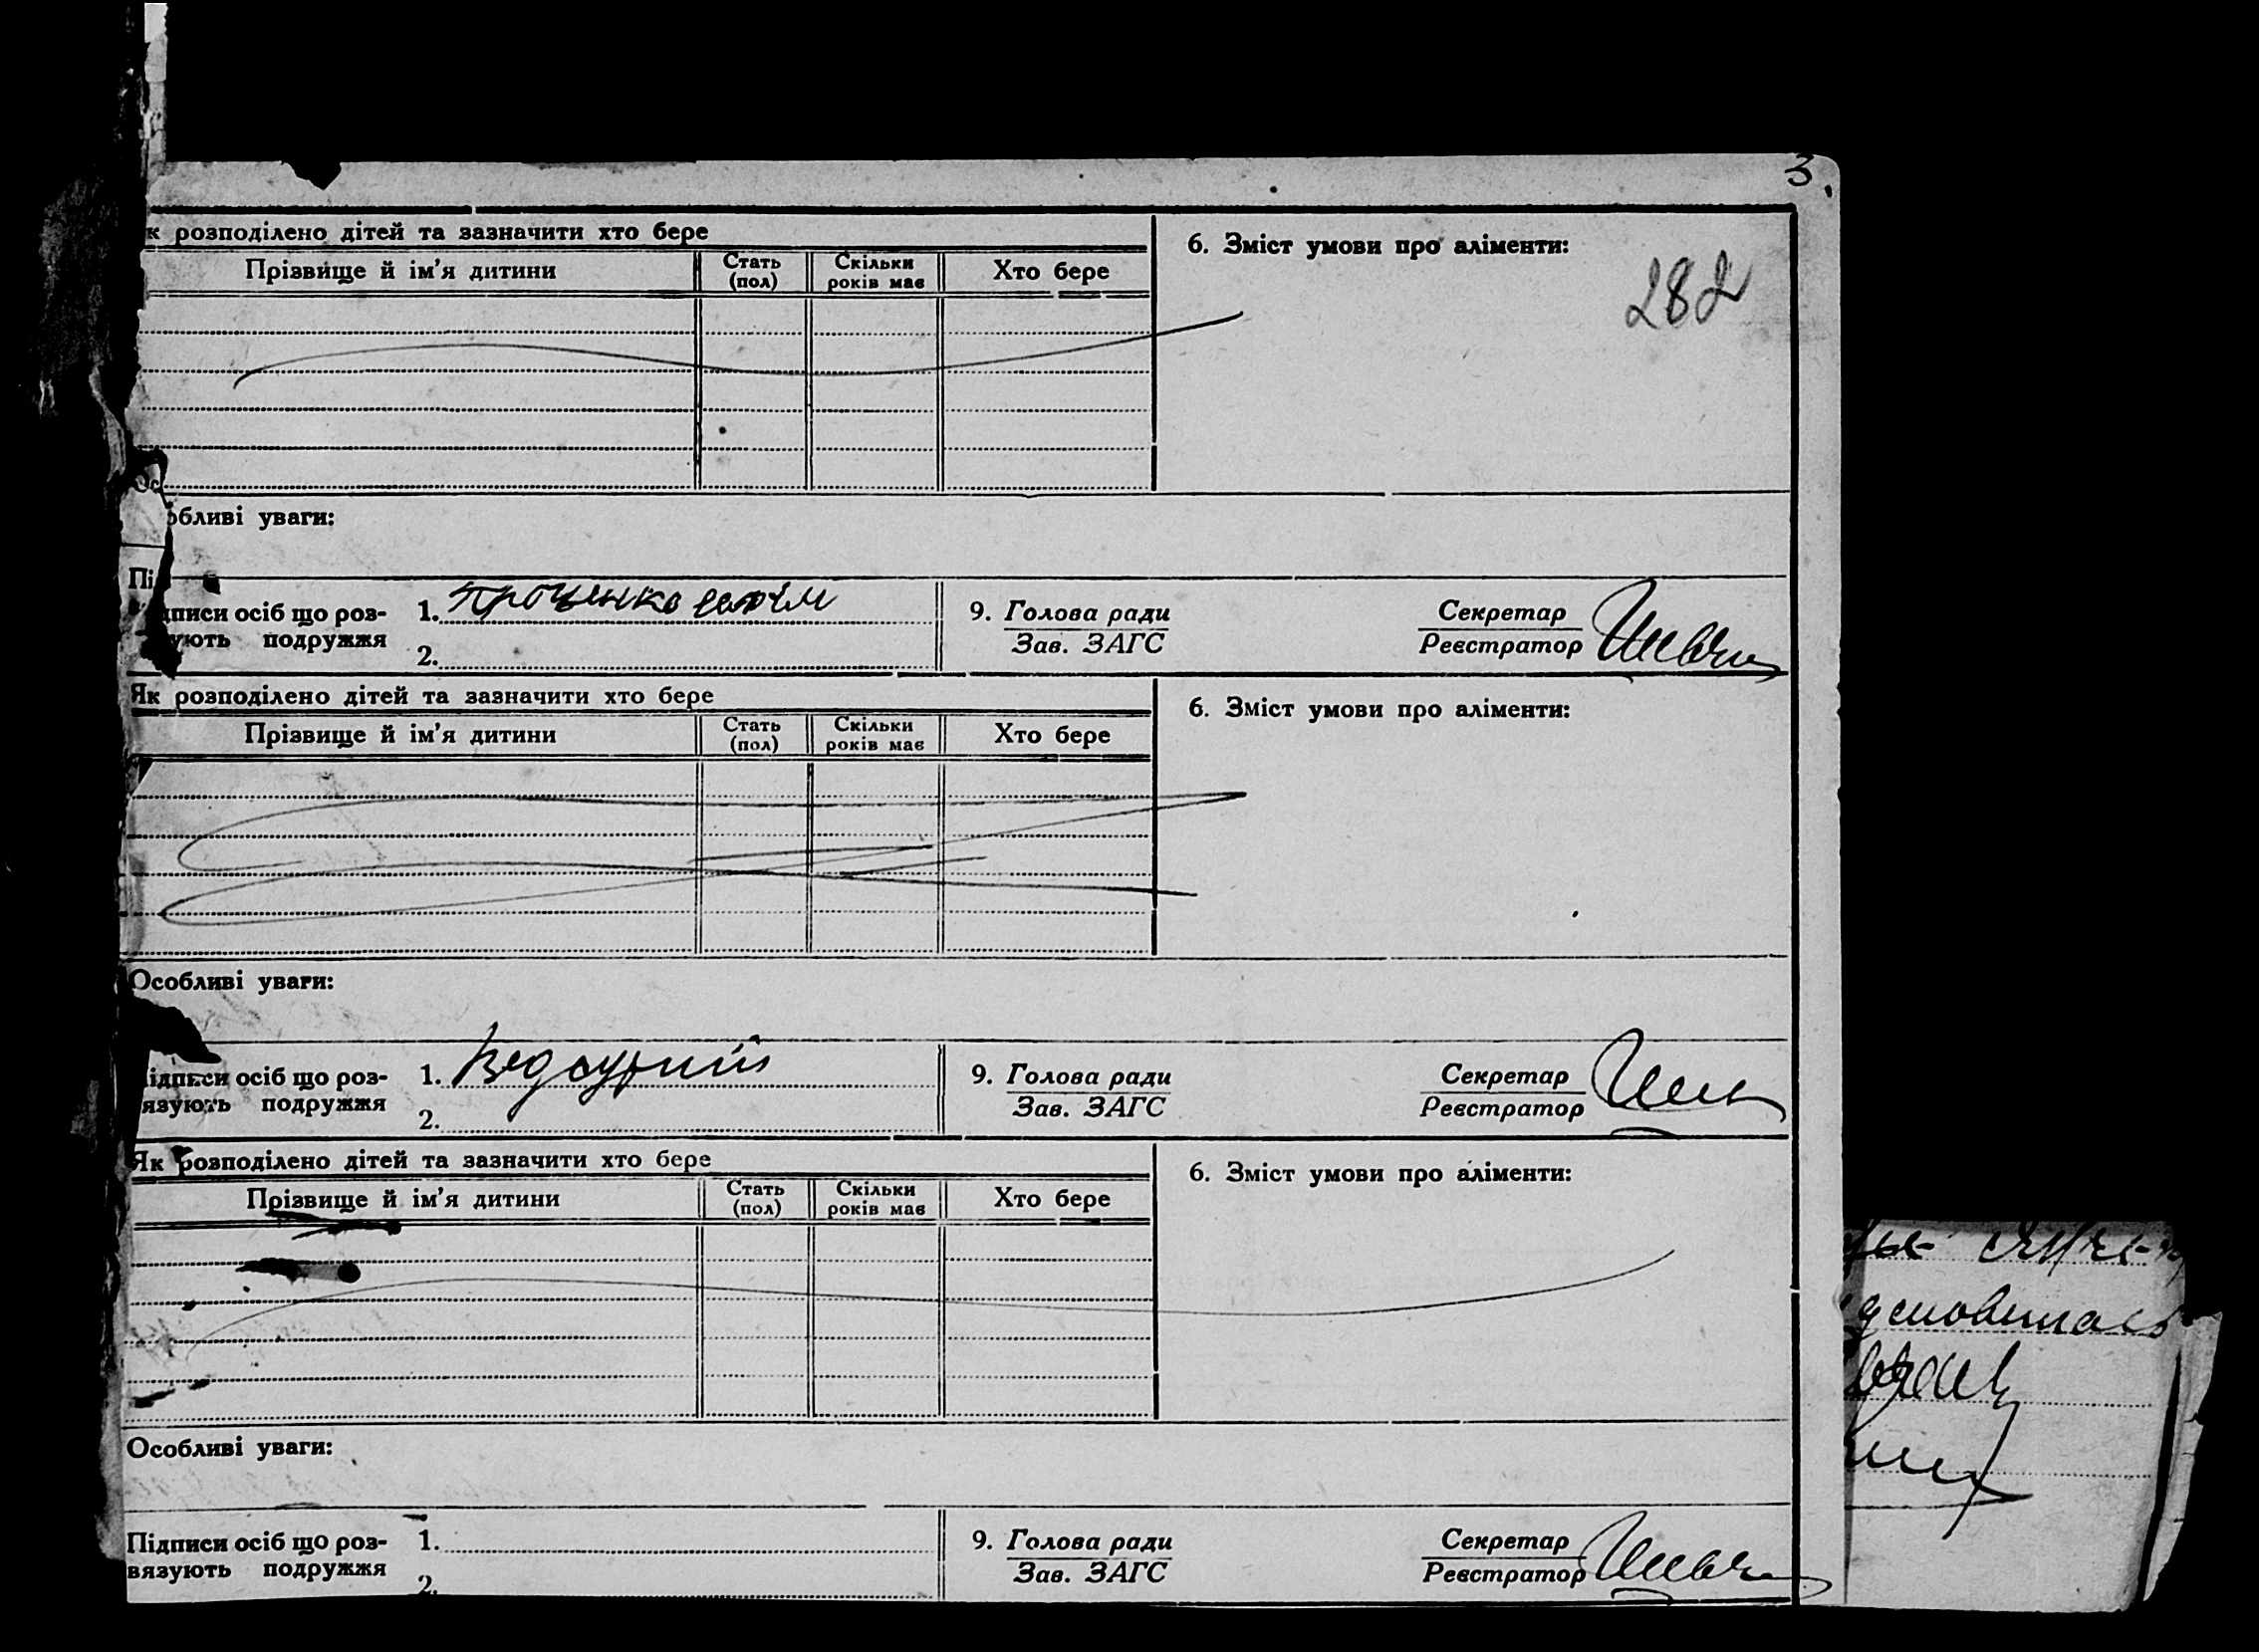 3.
к розподілено дітей та зазначити хто бере
6. Зміст умови про аліменти:
Прізвище й ім'я дитини Стать (пол) Скільки років має Хто бере
282
Ос
обливі уваги:
Пі
дписи осіб що роз- 1. Проценко
ують подружжя 2.
9. Голова ради Секретар
Зав. ЗАГС Реєстратор
Як розподілено дітей та зазначити хто бере
6. Зміст умови про аліменти:
Прізвище й ім'я дитини Стать (пол) Скільки років має Хто бере
Особливі уваги:
ідписи осіб що роз- 1.
язують подружжя 2.
9. Голова ради Секретар
Зав. ЗАГС Реєстратор
Як розподілено дітей та зазначити хто бере
6. Зміст умови про аліменти:
Прізвище й ім'я дитини Стать (пол) Скільки років має Хто бере
Особливі уваги:
Підписи осіб що роз- 1.
вязують подружжя 2.
9. Голова ради Секретар
Зав. ЗАГС Реєстратор